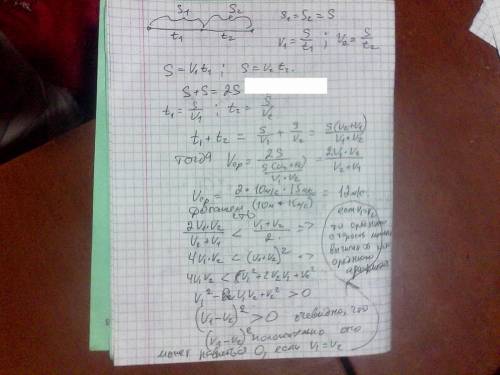 S₁ S₂
t₁ t₂
S₁ = S₂ = S
V₁ = S/t₁ ; V₂ = S/t₂
S = V₁t₁ ; S = V₂t₂.
S+S = 2S
t₁ = S/V₁ ; t₂ = S/V₂
t₁ + t₂ = S/V₁ + S/V₂ = S(V₂+V₁)/V₁·V₂
тогда Vср = 2S/(S(V₂+V₁)/V₁·V₂) = 2V₁·V₂/V₂+V₁
Vср = 2·10м/с·15м/с/(10м+15м/с) = 12м/с.
что
2V₁·V₂/V₂+V₁ < V₁+V₂/2 =>
4V₁V₂ < (V₁+V₂)² =>
4V₁V₂ < V₁²+2V₂V₁+V₂²
V₁²-2V₁V₂+V₂² > 0
(V₁-V₂)² > 0 очевидно, что
(V₁-V₂)² положительно
может равняться 0, если V₁=V₂
если V₁=V₂
то
скорость можно